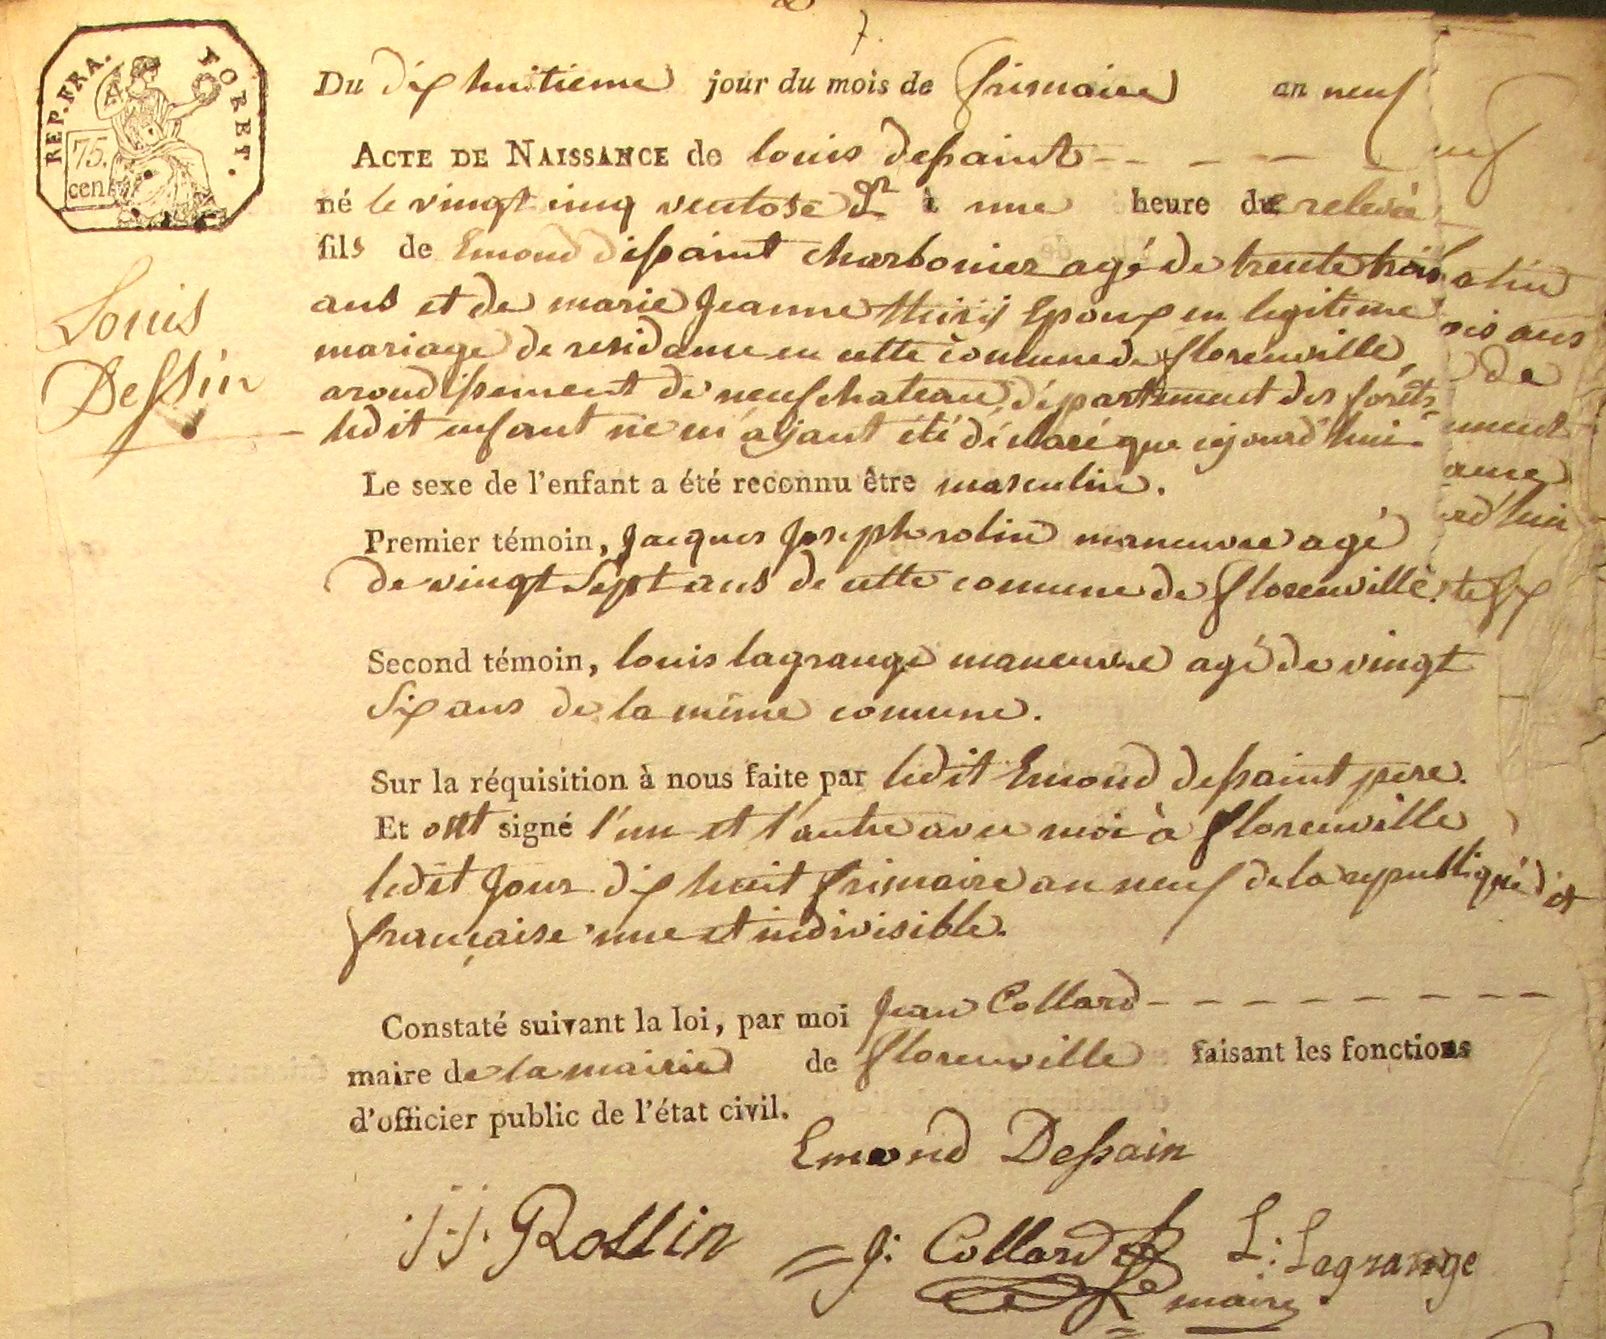 7.
REP. FRA. FORET.
75.
cen
Du dix huitieme jour du mois de frimaire an neuf
ACTE DE NAISSANCE de louis dessaint
né le vingt cinq ventose dr à une heure de relevée
fils de Emond dessaint charbonier agé de trente trois
ans et de marie Jeanne thiry Epoux en legitime
mariage de residance en cette comune de florenville,
arondissement de neufchateau, département des forêts,
ledit enfant ne m'ayant été déclaré que cejourd'hui.
Le sexe de l'enfant a été reconnu être masculin.
Premier témoin, Jacques Joseph rolin maneuvre agé
de vingt sept ans de cette comune de florenville.
Second témoin, louis lagrange maneuvre agé de vingt
Six ans de la même comune.
Sur la réquisition à nous faite par ledit Emond dessaint pere.
Et ont signé l'un et l'autre avec moi à florenville
ledit Jour dix huit frimaire an neuf de la republique
française une et indivisible.
Constaté suivant la loi, par moi Jean Collard
maire de la mairie de florenville faisant les fonctions
d'officier public de l'état civil.
Emond Dessain
J.J. Rollin J: Collard L: Legrange
maire
Louis
Dessin
uf
olin
ois ans
de
ement
ame
rd'hui